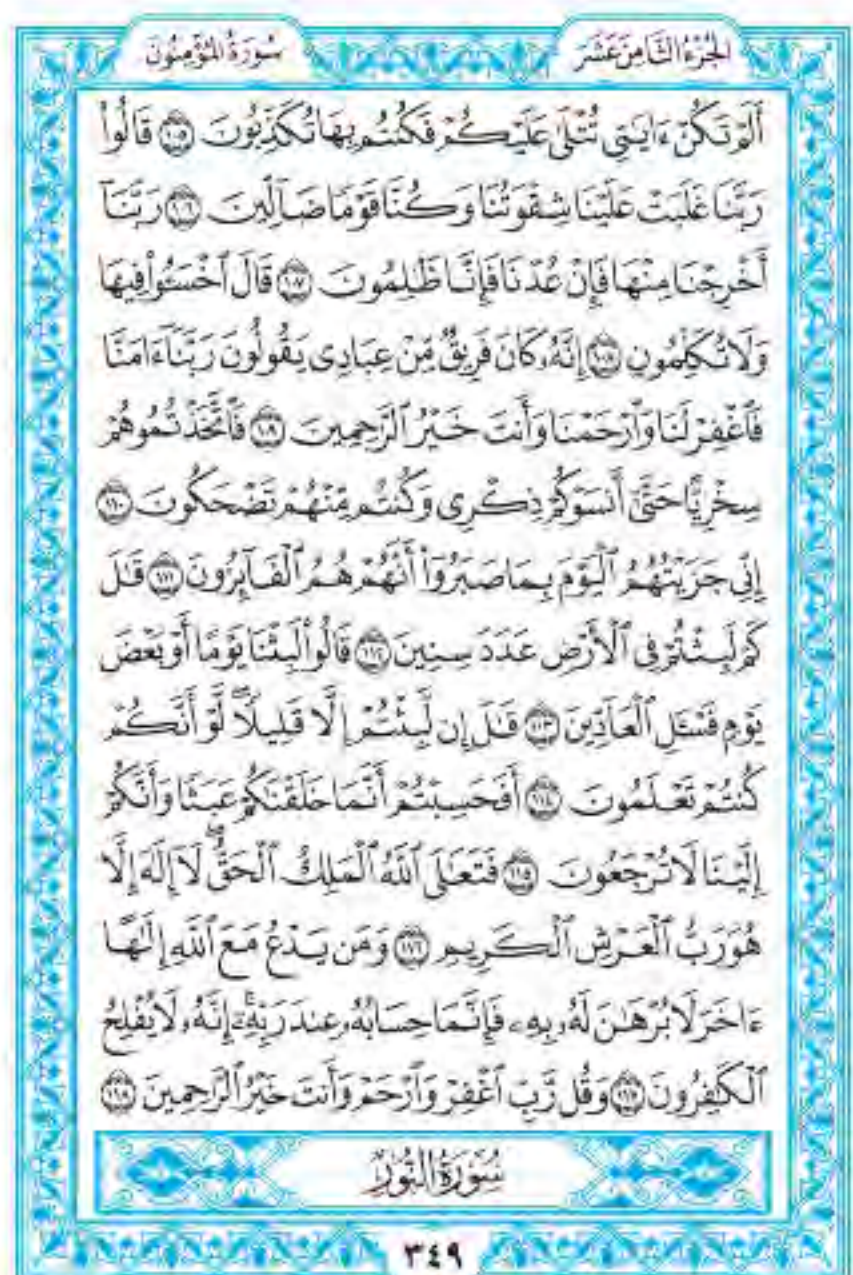 الجُزْءُ الثَّامِنَ عَشَرَ
سُورَةُ المُؤْمِنُونَ
أَلَمْ تَكُنْ ءَايَـٰتِى تُتْلَىٰ عَلَيْكُمْ فَكُنتُم بِهَا تُكَذِّبُونَ ١٠٥ قَالُوا۟
رَبَّنَا غَلَبَتْ عَلَيْنَا شِقْوَتُنَا وَكُنَّا قَوْمًا ضَآلِّينَ ١٠٦ رَبَّنَآ
أَخْرِجْنَا مِنْهَا فَإِنْ عُدْنَا فَإِنَّا ظَـٰلِمُونَ ١٠٧ قَالَ ٱخْسَـُٔوا۟ فِيهَا
وَلَا تُكَلِّمُونِ ١٠٨ إِنَّهُۥ كَانَ فَرِيقٌ مِّنْ عِبَادِى يَقُولُونَ رَبَّنَآ ءَامَنَّا
فَٱغْفِرْ لَنَا وَٱرْحَمْنَا وَأَنتَ خَيْرُ ٱلرَّٰحِمِينَ ١٠٩ فَٱتَّخَذْتُمُوهُمْ
سِخْرِيًّا حَتَّىٰٓ أَنسَوْكُمْ ذِكْرِى وَكُنتُم مِّنْهُمْ تَضْحَكُونَ ١١٠
إِنِّى جَزَيْتُهُمُ ٱلْيَوْمَ بِمَا صَبَرُوٓا۟ أَنَّهُمْ هُمُ ٱلْفَآئِزُونَ ١١١ قَـٰلَ
كَمْ لَبِثْتُمْ فِى ٱلْأَرْضِ عَدَدَ سِنِينَ ١١٢ قَالُوا۟ لَبِثْنَا يَوْمًا أَوْ بَعْضَ
يَوْمٍ فَسْـَٔلِ ٱلْعَآدِّينَ ١١٣ قَـٰلَ إِن لَّبِثْتُمْ إِلَّا قَلِيلًا ۖ لَّوْ أَنَّكُمْ
كُنتُمْ تَعْلَمُونَ ١١٤ أَفَحَسِبْتُمْ أَنَّمَا خَلَقْنَـٰكُمْ عَبَثًا وَأَنَّكُمْ
إِلَيْنَا لَا تُرْجَعُونَ ١١٥ فَتَعَـٰلَى ٱللَّهُ ٱلْمَلِكُ ٱلْحَقُّ ۖ لَآ إِلَـٰهَ إِلَّا
هُوَ رَبُّ ٱلْعَرْشِ ٱلْكَرِيمِ ١١٦ وَمَن يَدْعُ مَعَ ٱللَّهِ إِلَـٰهًا
ءَاخَرَ لَا بُرْهَـٰنَ لَهُۥ بِهِۦ فَإِنَّمَا حِسَابُهُۥ عِندَ رَبِّهِۦٓ ۚ إِنَّهُۥ لَا يُفْلِحُ
ٱلْكَـٰفِرُونَ ١١٧ وَقُل رَّبِّ ٱغْفِرْ وَٱرْحَمْ وَأَنتَ خَيْرُ ٱلرَّٰحِمِينَ ١١٨
سُورَةُ النُّورِ
٣٤٩